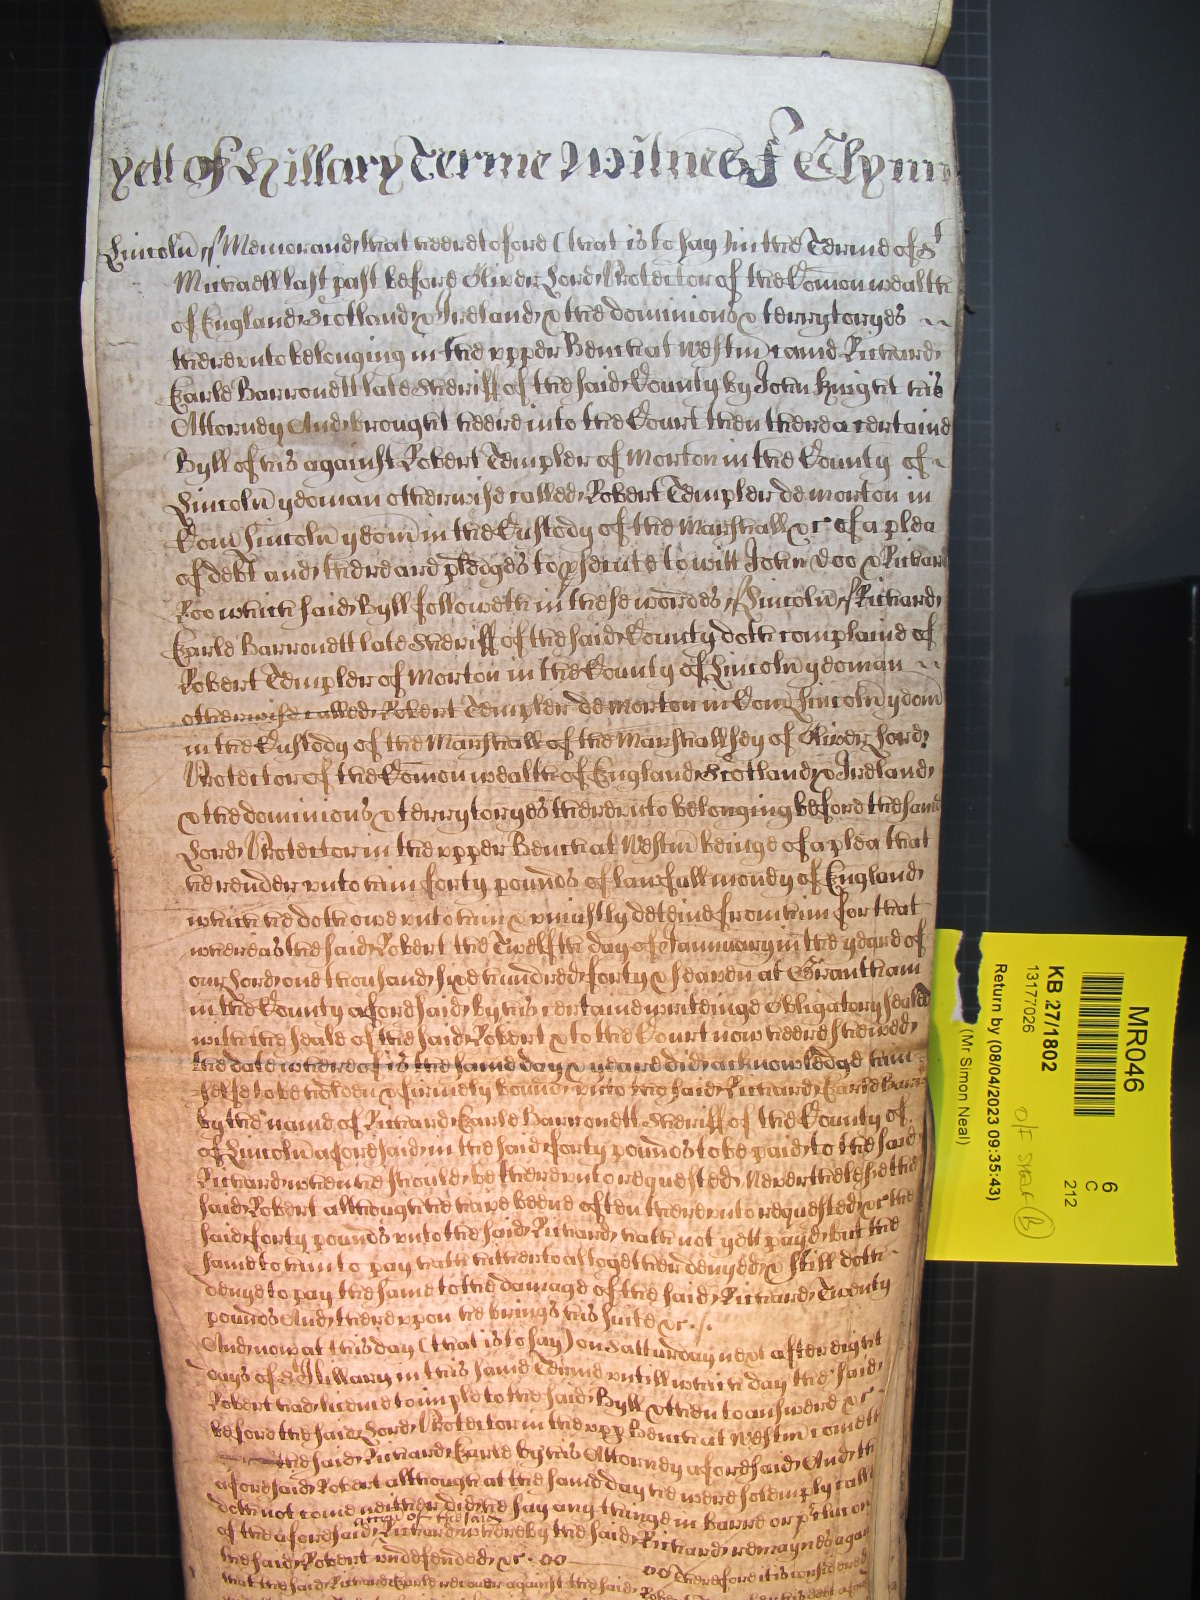 yett of Hillary Terme Witnes J Glynn
Lincoln ss Memorand that heeretofore (that is to say) in the Terme of St
Michaell last past before Oliver Lord Protector of the Comonwealth
of England Scotland & Ireland & the dominions & terrytoryes
thereunto belonging in the upper Bench at Westm came Richard
Earle Barronett late Sheriff of the said County by John Knight his
Attorney And brought heere into the Court then there a certaine
Byll of his against Robert Templer of Morton in the County of
Lincoln yeoman otherwise called Robert Templer de morton in
Com Lincoln yeom in the Custody of the Marshall &c of a plea
of debt and there are pledges to psecute to witt John Doo & Richard
Roo which said Byll followeth in these wordes ss Lincoln ss Richard
Earle Barronett late Sheriff of the said County doth complaine of
Robert Templer of Morton in the County of Lincoln yeoman
otherwise called Robert Templer de morton in Com Lincoln yeom
in the Custody of the Marshall of the Marshallsey of Oliver Lord
Protector of the Comonwealth of England Scotland & Ireland
& the dominions & terrytoryes thereunto belonging before the same
Lord Protector in the upper Bench at Westm beinge of a plea that
he render unto him forty pounds of lawfull money of England
which he doth owe unto him & uniustly deteine from him for that
whereas the said Robert the Twelfth day of Jannuary in the yeare of
our Lord one thousand sixe hundred forty & seaven at Grantham
in the County aforesaid by his certaine writeinge Obligatory sealed
with the seale of the said Robert & to the Court now heere shewed
the date whereof is the same day & yeare did acknowledge him
selfe to be holden & firmely bound unto the said Richard Earle Barr
by the name of Richard Earle Barronett Sheriff of the County of
of Lincoln aforesaid in the said forty pounds to be paid to the said
Richard when he should be thereunto requested Neverthelesse the
said Robert although he have beene often thereunto requested &c the
said forty pounds unto the said Richard hath not yett payd but the
same to him to pay hath hitherto altogether denyed & still doth
denye to pay the same to the damage of the said Richard Twenty
pounds And thereupon he brings his suite &c
And now at this day (that is to say) on Satturday next after eight
dayes of St Hillary in this same Terme untill which day the said
Robert had licence to imple to the said Byll & then to answere &c
before the said Lord Protector in the upp Bench at Westm cometh
the said Richard Earle by his Attorney aforesaid And the
aforesaid Robert although at the same day he were solemply called
doth not come neither did he say any thinge in barre or pclusion
of the accon of the said
aforesaid Richard whereby the said Richard remaynes against
the said Robert undefended &c Therefore it is considered
that the said Richard Earle recover against the said Robert
MR046
6
C
212
KB 27/1802
13177026
O/F
Return by (08/04/2023 09:35:43)
(Mr Simon Neal)